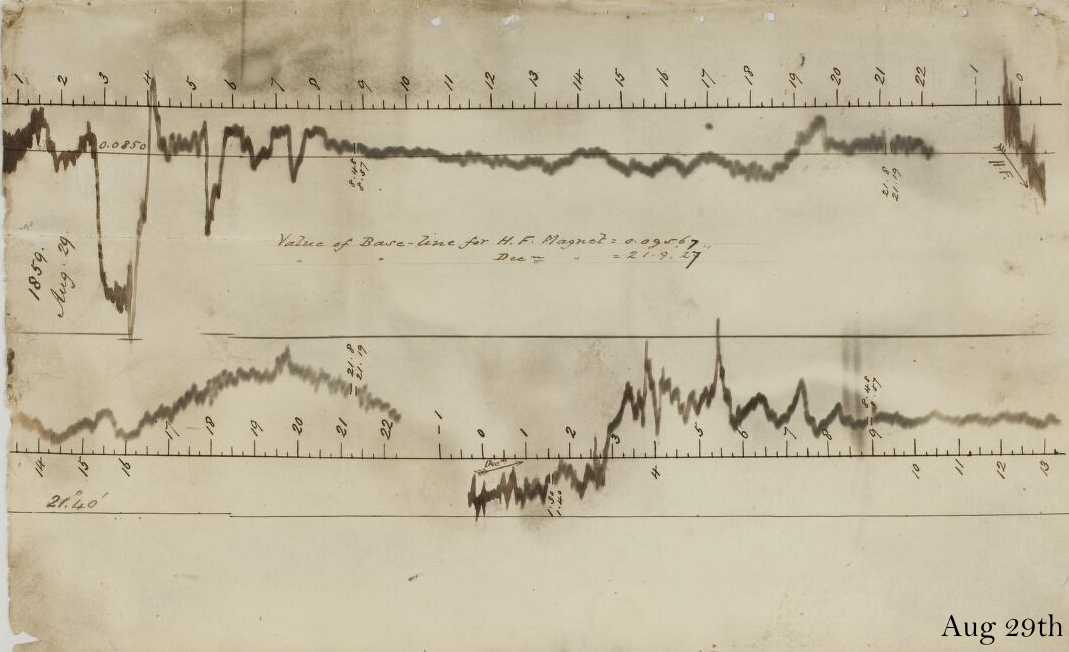 1 2 3 4 5 6 7 8 9 10 11 12 13 14 15 16 17 18 19 20 21 22 1 0
0.0850
8.48
8.57
21.8
21.19
H.F.
1859.
Aug. 29.
Value of Base-line for H.F. Magnet = 0.09567
Dec = 21.9.27
21.8
21.19
8.48
8.57
17 18 19 20 21 22 1 0 1 2 3 5 6 7 8 9
14 15 16 4 10 11 12 13
Decn
1.30
1.40
21°.40'
Aug 29th